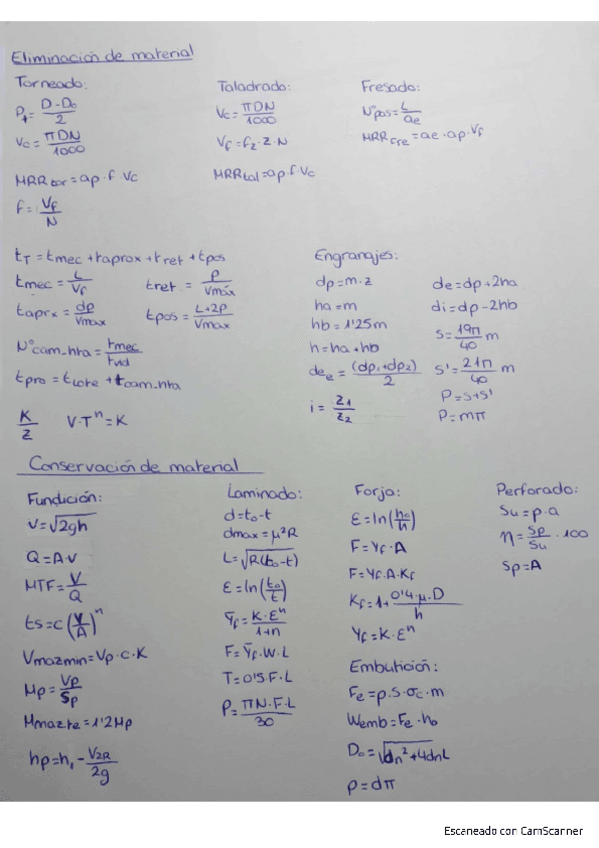 Eliminación de material
Torneado:
Pt = (D - Do)/2
Vc = πDN/1000
MRRtor = ap · f · Vc
f = Vf/N
Taladrado:
Vc = πDN/1000
Vf = fz · Z · N
MRRtal = ap · f · Vc
Fresado:
Nºpos = L/ae
MRRfre = ae · ap · Vf
tT = tmec + taprox + tret + tpos
tmec = L/Vf
tret = P/Vmáx
taprx = dp/Vmax
tpos = (L+2P)/Vmax
Nºcam_hta = tmec/tvid
tpro = tlote + tcam_hta
K/Z
V·T^n = K
Engranajes:
dp = m · z
ha = m
hb = 1'25m
h = ha + hb
dee = (dp1+dp2)/2
i = z1/z2
de = dp + 2ha
di = dp - 2hb
s = 19π/40 m
s' = 21π/40 m
P = s + s'
P = mπ
Conservación de material
Fundición:
v = √2gh
Q = A·v
MTF = V/Q
ts = c(V/A)^n
Vmazmin = Vp · c · K
Mp = Vp/Sp
Mmazte = 1'2Mp
hp = h1 - V2R/2g
Laminado:
d = to - t
dmax = μ²R
L = √R(to - t)
ε = ln(to/t)
Ȳf = K·ε^n/1+n
F = Ȳf · W · L
T = 0'5·F·L
P = πN·F·L/30
Forja:
ε = ln(ho/h)
F = Yf · A
F = Yf · A · Kf
Kf = 1 + 0'4·μ·D/h
Yf = K · ε^n
Embutición:
Fe = p·s·σc·m
Wemb = Fe · ho
Do = √dn² + 4dnL
p = dπ
Perforado:
Su = p · a
η = Sp/Su · 100
Sp = A
Escaneado con CamScanner